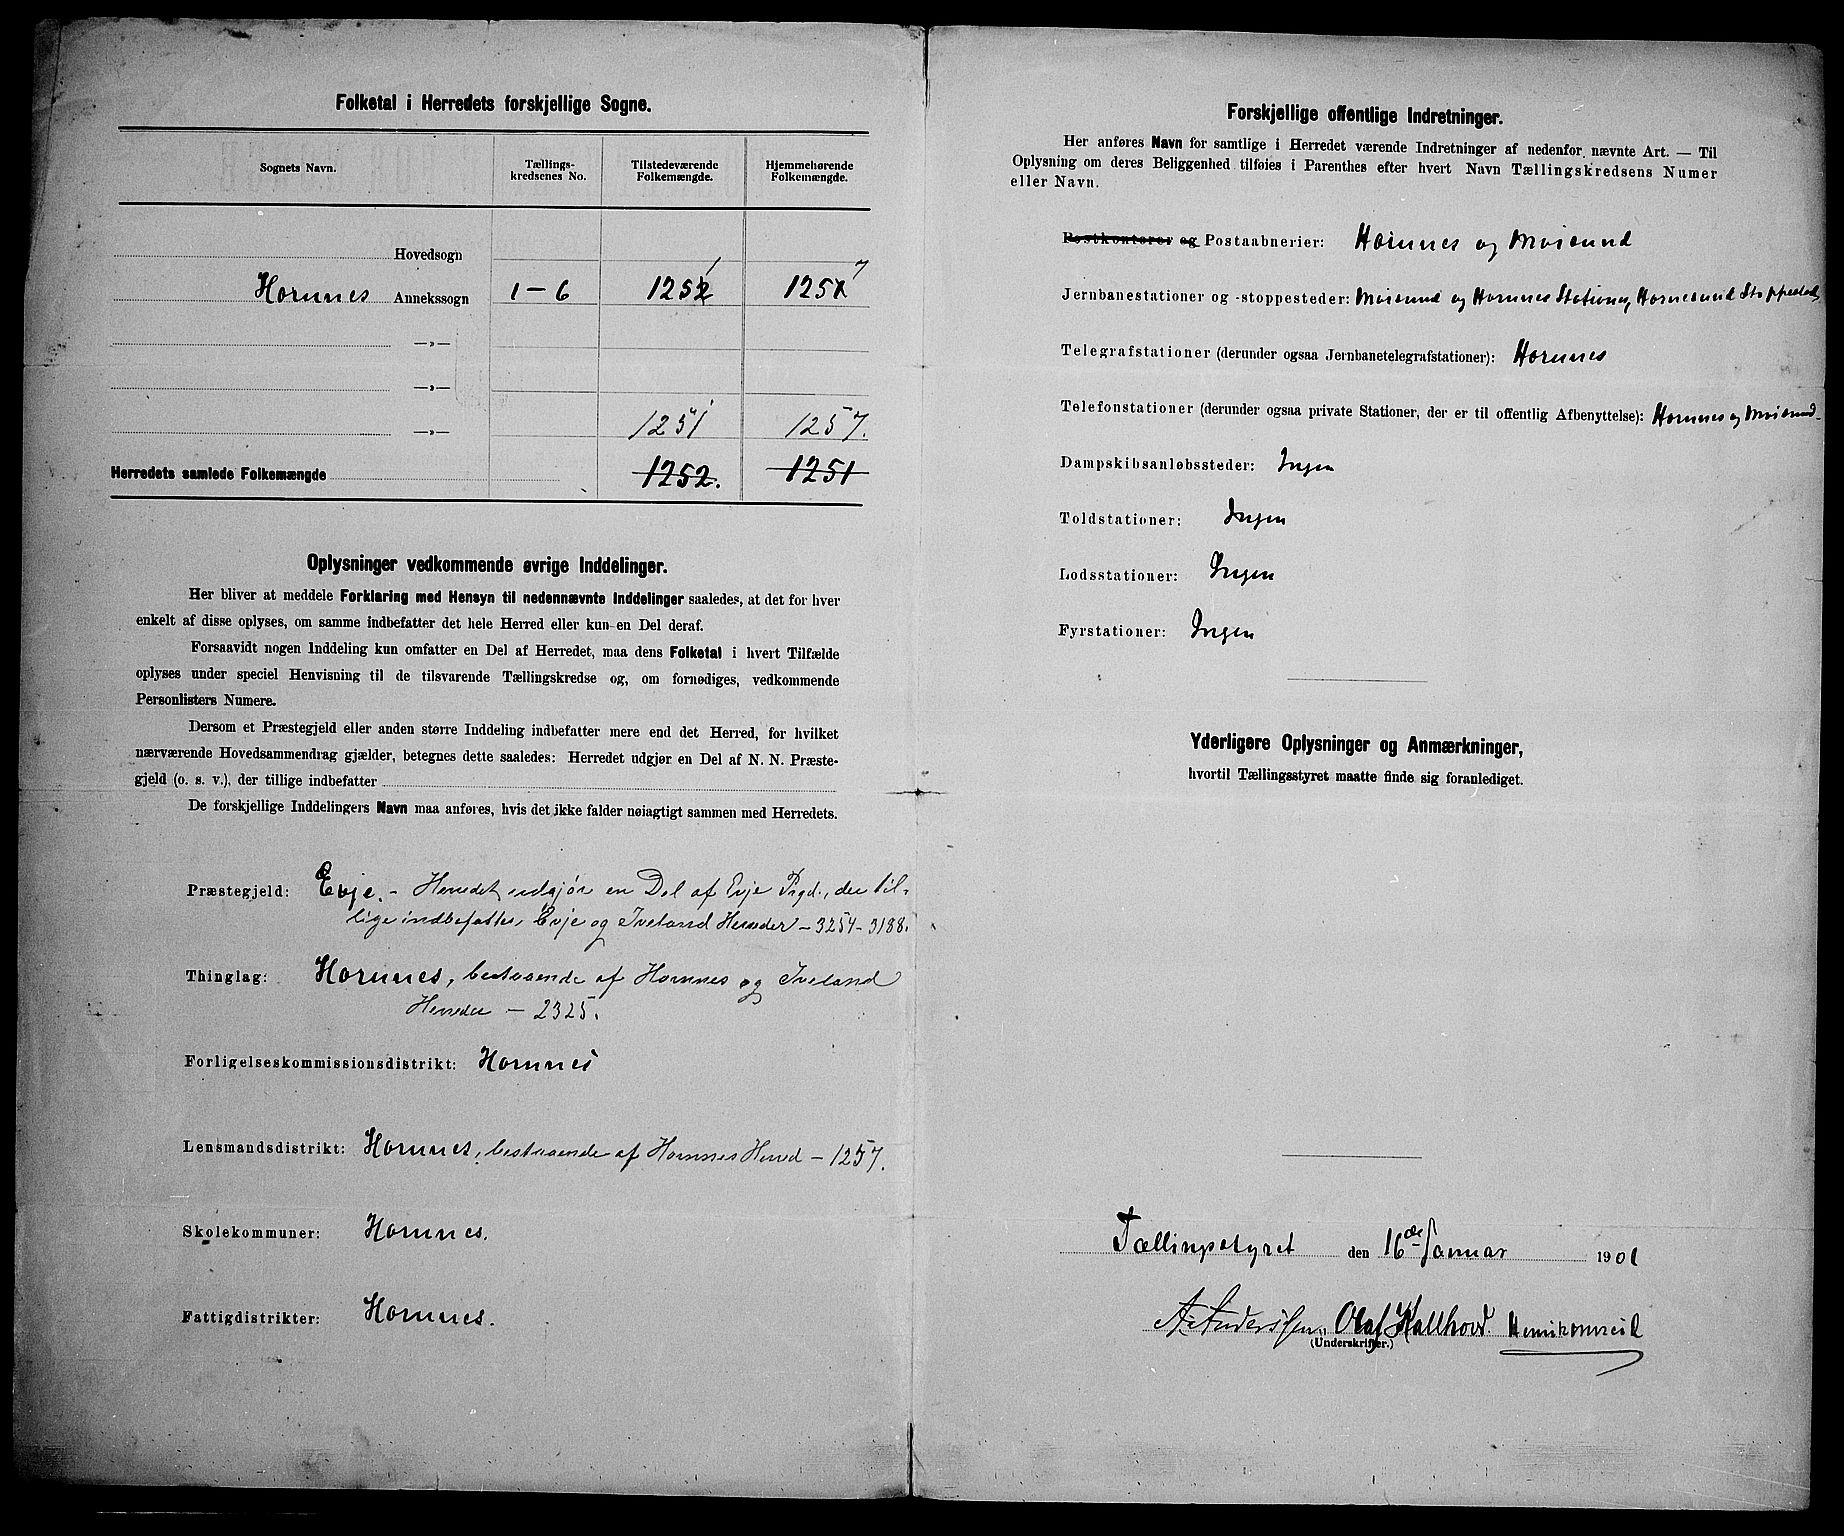 Folketal i Herredets forskjellige Sogne.
Sognets Navn. Tællings- Tilstedeværende Hjemmehørende
kredsenes No. Folkemængde. Folkemængde.
Hovedsogn
Hornnes Annekssogn 1-6 1252 1 1251 7
—»—
—»—
—»— 1251 1257.
Herredets samlede Folkemængde 1252. 1251
Oplysninger vedkommende øvrige Inddelinger.
Her bliver at meddele Forklaring med Hensyn til nedennævnte Inddelinger saaledes, at det for hver
enkelt af disse oplyses, om samme indbefatter det hele Herred eller kun en Del deraf.
Forsaavidt nogen Inddeling kun omfatter en Del af Herredet, maa dens Folketal i hvert Tilfælde
oplyses under speciel Henvisning til de tilsvarende Tællingskredse og, om fornødiges, vedkommende
Personlisters Numere.
Dersom et Præstegjeld eller anden større Inddeling indbefatter mere end det Herred, for hvilket
nærværende Hovedsammendrag gjælder, betegnes dette saaledes: Herredet udgjør en Del af N. N. Præste-
gjeld (o. s. v.), der tillige indbefatter
De forskjellige Inddelingers Navn maa anføres, hvis det ikke falder nøiagtigt sammen med Herredets.
Præstegjeld: Evje. - Herredet udgjør en Del af Evje Prgd., der til-
lige indbefatter Evje og Iveland Herreder - 3254 - 3188.
Thinglag: Hornnes, bestaaende af Hornnes og Iveland
Herreder - 2325.
Forligelseskommissionsdistrikt: Hornnes
Lensmandsdistrikt: Hornnes, bestaaende af Hornnes Herred - 1257.
Skolekommuner: Hornnes.
Fattigdistrikter: Hornnes.
Forskjellige offentlige Indretninger.
Her anføres Navn for samtlige i Herredet værende Indretninger af nedenfor nævnte Art. — Til
Oplysning om deres Beliggenhed tilføies i Parenthes efter hvert Navn Tællingskredsens Numer
eller Navn.
Postkontorer og Postaabnerier: Hornnes og Moisund
Jernbanestationer og -stoppesteder: Moisund og Hornnes Station og Hornesund Stoppested
Telegrafstationer (derunder ogsaa Jernbanetelegrafstationer): Hornnes
Telefonstationer (derunder ogsaa private Stationer, der er til offentlig Afbenyttelse): Hornnes og Moisund
Dampskibsanløbssteder: Ingen
Toldstationer: Ingen
Lodsstationer: Ingen
Fyrstationer: Ingen
Yderligere Oplysninger og Anmærkninger,
hvortil Tællingsstyret maatte finde sig foranlediget.
Tællingsstyret den 16de Januar 1901
A. Anderssen, Olaf Kallhovd.
(Underskrifter.)